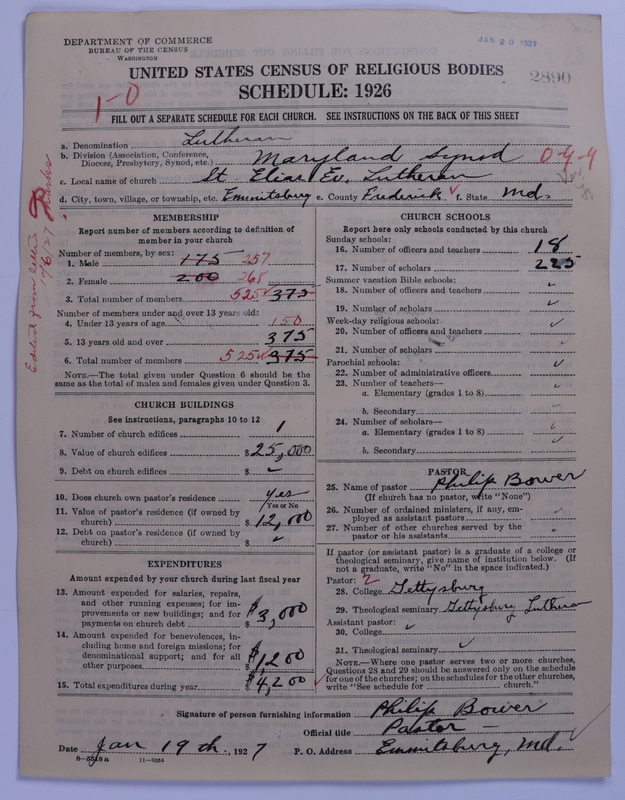 DEPARTMENT OF COMMERCE
BUREAU OF THE CENSUS
WASHINGTON
JAN 20 1927
2890
UNITED STATES CENSUS OF RELIGIOUS BODIES
SCHEDULE: 1926
1-0
FILL OUT A SEPARATE SCHEDULE FOR EACH CHURCH. SEE INSTRUCTIONS ON THE BACK OF THIS SHEET
a. Denomination Lutheran
b. Division (Association, Conference, Diocese, Presbytery, Synod, etc.) Maryland Synod 0-4-4
c. Local name of church St. Elias Ev. Lutheran
d. City, town, village, or township, etc. Emmitsburg e. County Frederick ✓ f. State Md.
MEMBERSHIP
Report number of members according to definition of member in your church
Number of members, by sex:
1. Male 175 257
2. Female 200 268
3. Total number of members 525 ✓ 375
Number of members under and over 13 years old:
4. Under 13 years of age 150
5. 13 years old and over 375
6. Total number of members 525 ✓ 375
NOTE.—The total given under Question 6 should be the same as the total of males and females given under Question 3.
CHURCH BUILDINGS
See instructions, paragraphs 10 to 12
7. Number of church edifices 1
8. Value of church edifices $25,000
9. Debt on church edifices $ ✓
10. Does church own pastor's residence yes
(Yes or No)
11. Value of pastor's residence (if owned by church) $12,000
12. Debt on pastor's residence (if owned by church) $ ✓
EXPENDITURES
Amount expended by your church during last fiscal year
13. Amount expended for salaries, repairs, and other running expenses; for improvements or new buildings; and for payments on church debt $3,000
14. Amount expended for benevolences, including home and foreign missions; for denominational support; and for all other purposes $1,200
15. Total expenditures during year $4,200 ✓
CHURCH SCHOOLS
Report here only schools conducted by this church
Sunday schools:
16. Number of officers and teachers 18
17. Number of scholars 225
Summer vacation Bible schools:
18. Number of officers and teachers ✓
19. Number of scholars ✓
Week-day religious schools:
20. Number of officers and teachers ✓
21. Number of scholars ✓
Parochial schools:
22. Number of administrative officers ✓
23. Number of teachers—
a. Elementary (grades 1 to 8) ✓
b. Secondary ✓
24. Number of scholars—
a. Elementary (grades 1 to 8) ✓
b. Secondary ✓
PASTOR
25. Name of pastor Philip Bower
(If church has no pastor, write "None")
26. Number of ordained ministers, if any, employed as assistant pastors ✓
27. Number of other churches served by the pastor or his assistants
If pastor (or assistant pastor) is a graduate of a college or theological seminary, give name of institution below. (If not a graduate, write "No" in the space indicated.)
Pastor: 2
28. College Gettysburg
29. Theological seminary Gettysburg Lutheran
Assistant pastor:
30. College ✓
31. Theological seminary ✓
NOTE.—Where one pastor serves two or more churches, Questions 28 and 29 should be answered only on the schedule for one of the churches; on the schedules for the other churches, write "See schedule for church."
Signature of person furnishing information Philip Bower
Official title Pastor
Date Jan 19th, 1927 P. O. Address Emmitsburg, Md.
8-5519a 11-9064